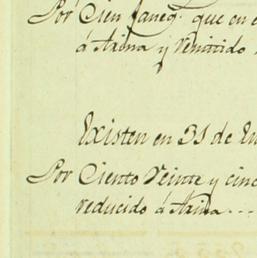 Por Cien faneg.s que en
á Arina y remitido
Existen en 31 de En
Por Ciento Veinte y cinc
reducido á Arina...